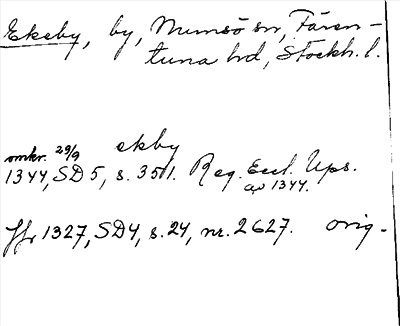 Ekeby, by, Munsö sn, Fären-
tuna hd, Stockh. l.
ekby
omkr. 29/9
1344, SD 5, s. 351. Reg. Eccl. Ups.
av 1344.
Jfr 1327, SD 4, s. 24, nr. 2627. orig.